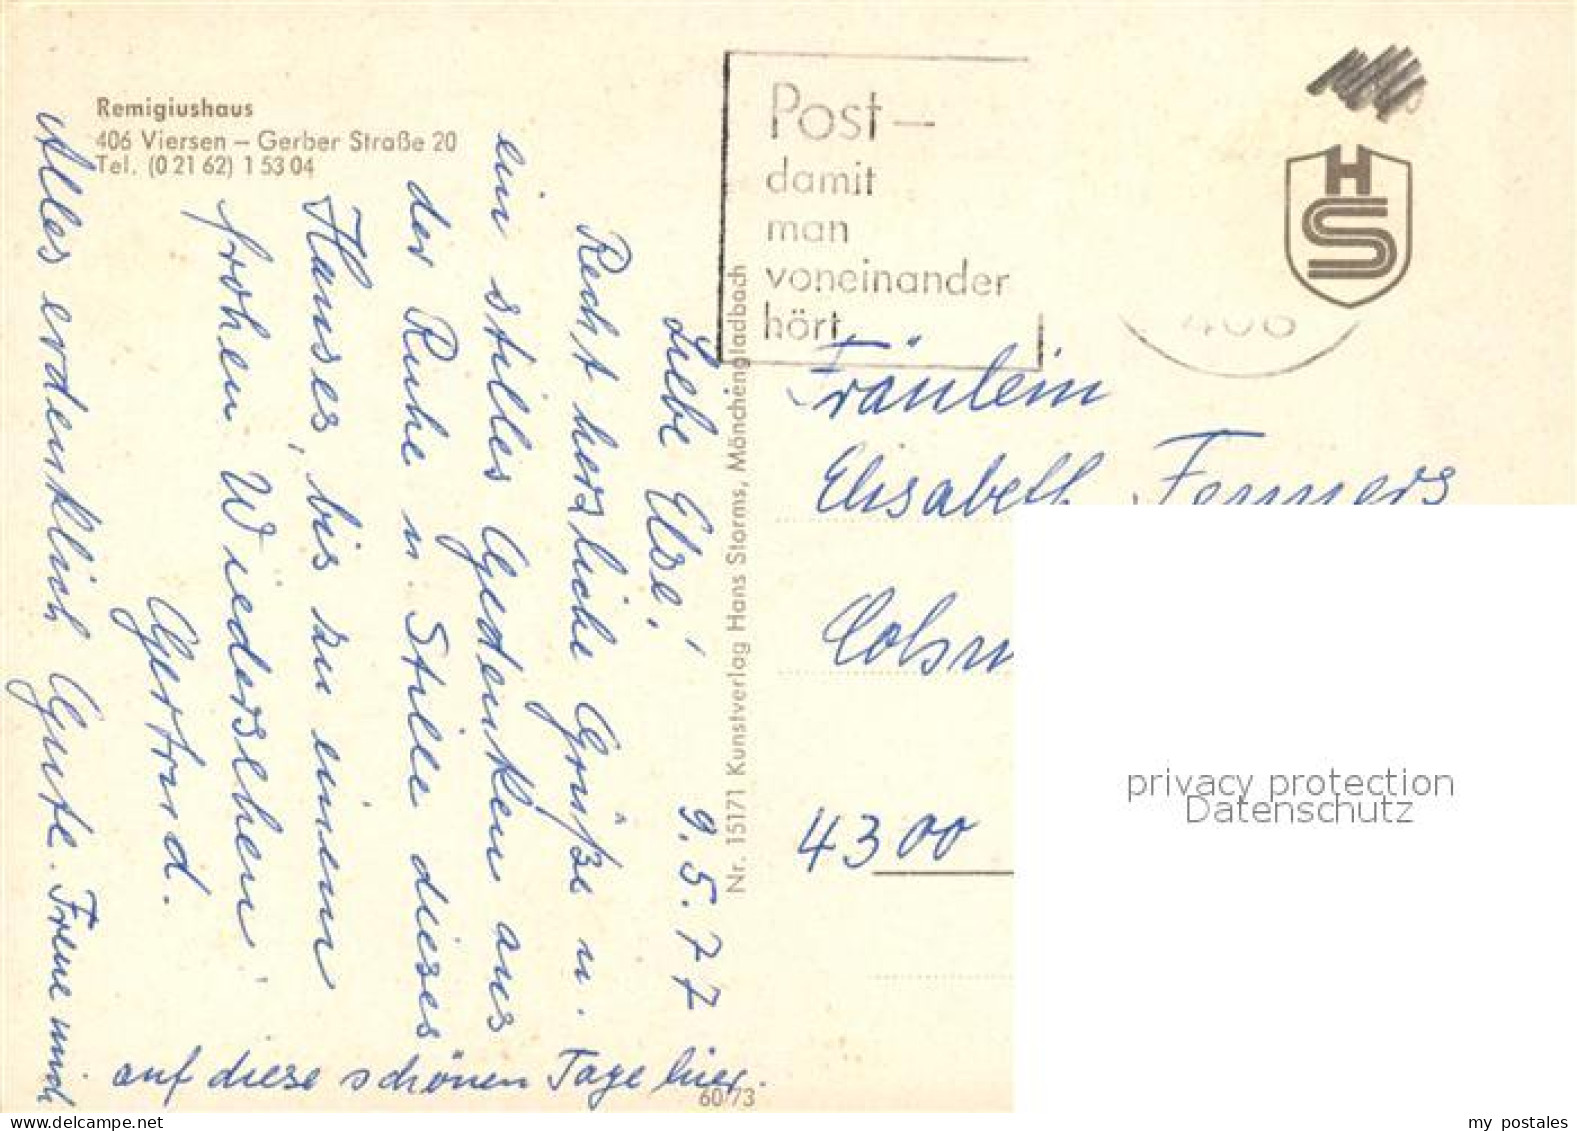 Remigiushaus
406 Viersen – Gerber Straße 20
Tel. (0 21 62) 1 53 04
Post –
damit
man
voneinander
hört
HS
406
Liebe Else! 9.5.77
Recht herzliche Grüße u.
ein stilles Gedenken aus
der Ruhe u. Stille dieses
Hauses, bis zu einem
frohen Wiedersehen!
Gertrud.
Alles erdenklich Gute. Freue mich
auf diese schönen Tage hier.
Nr. 15171 Kunstverlag Hans Storms, Mönchengladbach
60/73
Fräulein
Elisabeth
4300
privacy protection
Datenschutz
my postales